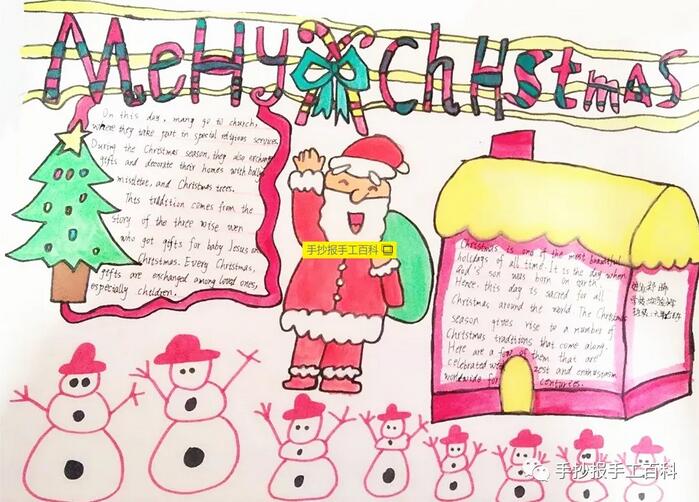 MeHy ChHstmas
On this day, mang go to church,
where they take part in special religious services.
During the Christmas season, they also exchang
gifts and decorate their homes with holly,
mistletoe, and Christmas trees.
This tradition comes from the
story of the three wise men
who got gifts for baby Jesus on
Christmas. Every Christmas,
gifts are exchanged among loved ones,
especially children.
手抄报手工百科
Christmas is one of the most beautiful
holidays of all time. It is the day when
God's son was born on earth.
Hence, this day is sacred for all
Christmas around the world. The Christmas
season gives rise to a number of
Christmas traditions that come along.
Here are a few of them that are
celebrated with zest and enthusiasm
worldwide for centuries.
手抄报手工百科